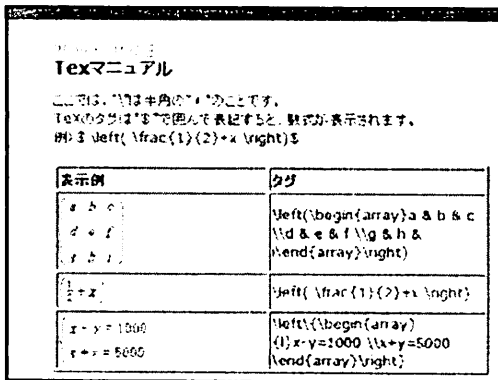 Texマニュアル
ここでは、"\"は半角の"¥"のことです。
TeXのタグは"$"で囲んで表記すると、数式が表示されます。
例) $ \left( \frac{1}{2}+x \right)$
表示例
タグ
a b c
d e f
g h i
\left(\begin{array}a & b & c
\\d & e & f \\g & h &
\end{array}\right)
1/2 + x
\left( \frac{1}{2}+x \right)
x - y = 1000
x + y = 5000
\left\{\begin{array}
{l}x-y=1000 \\x+y=5000
\end{array}\right}